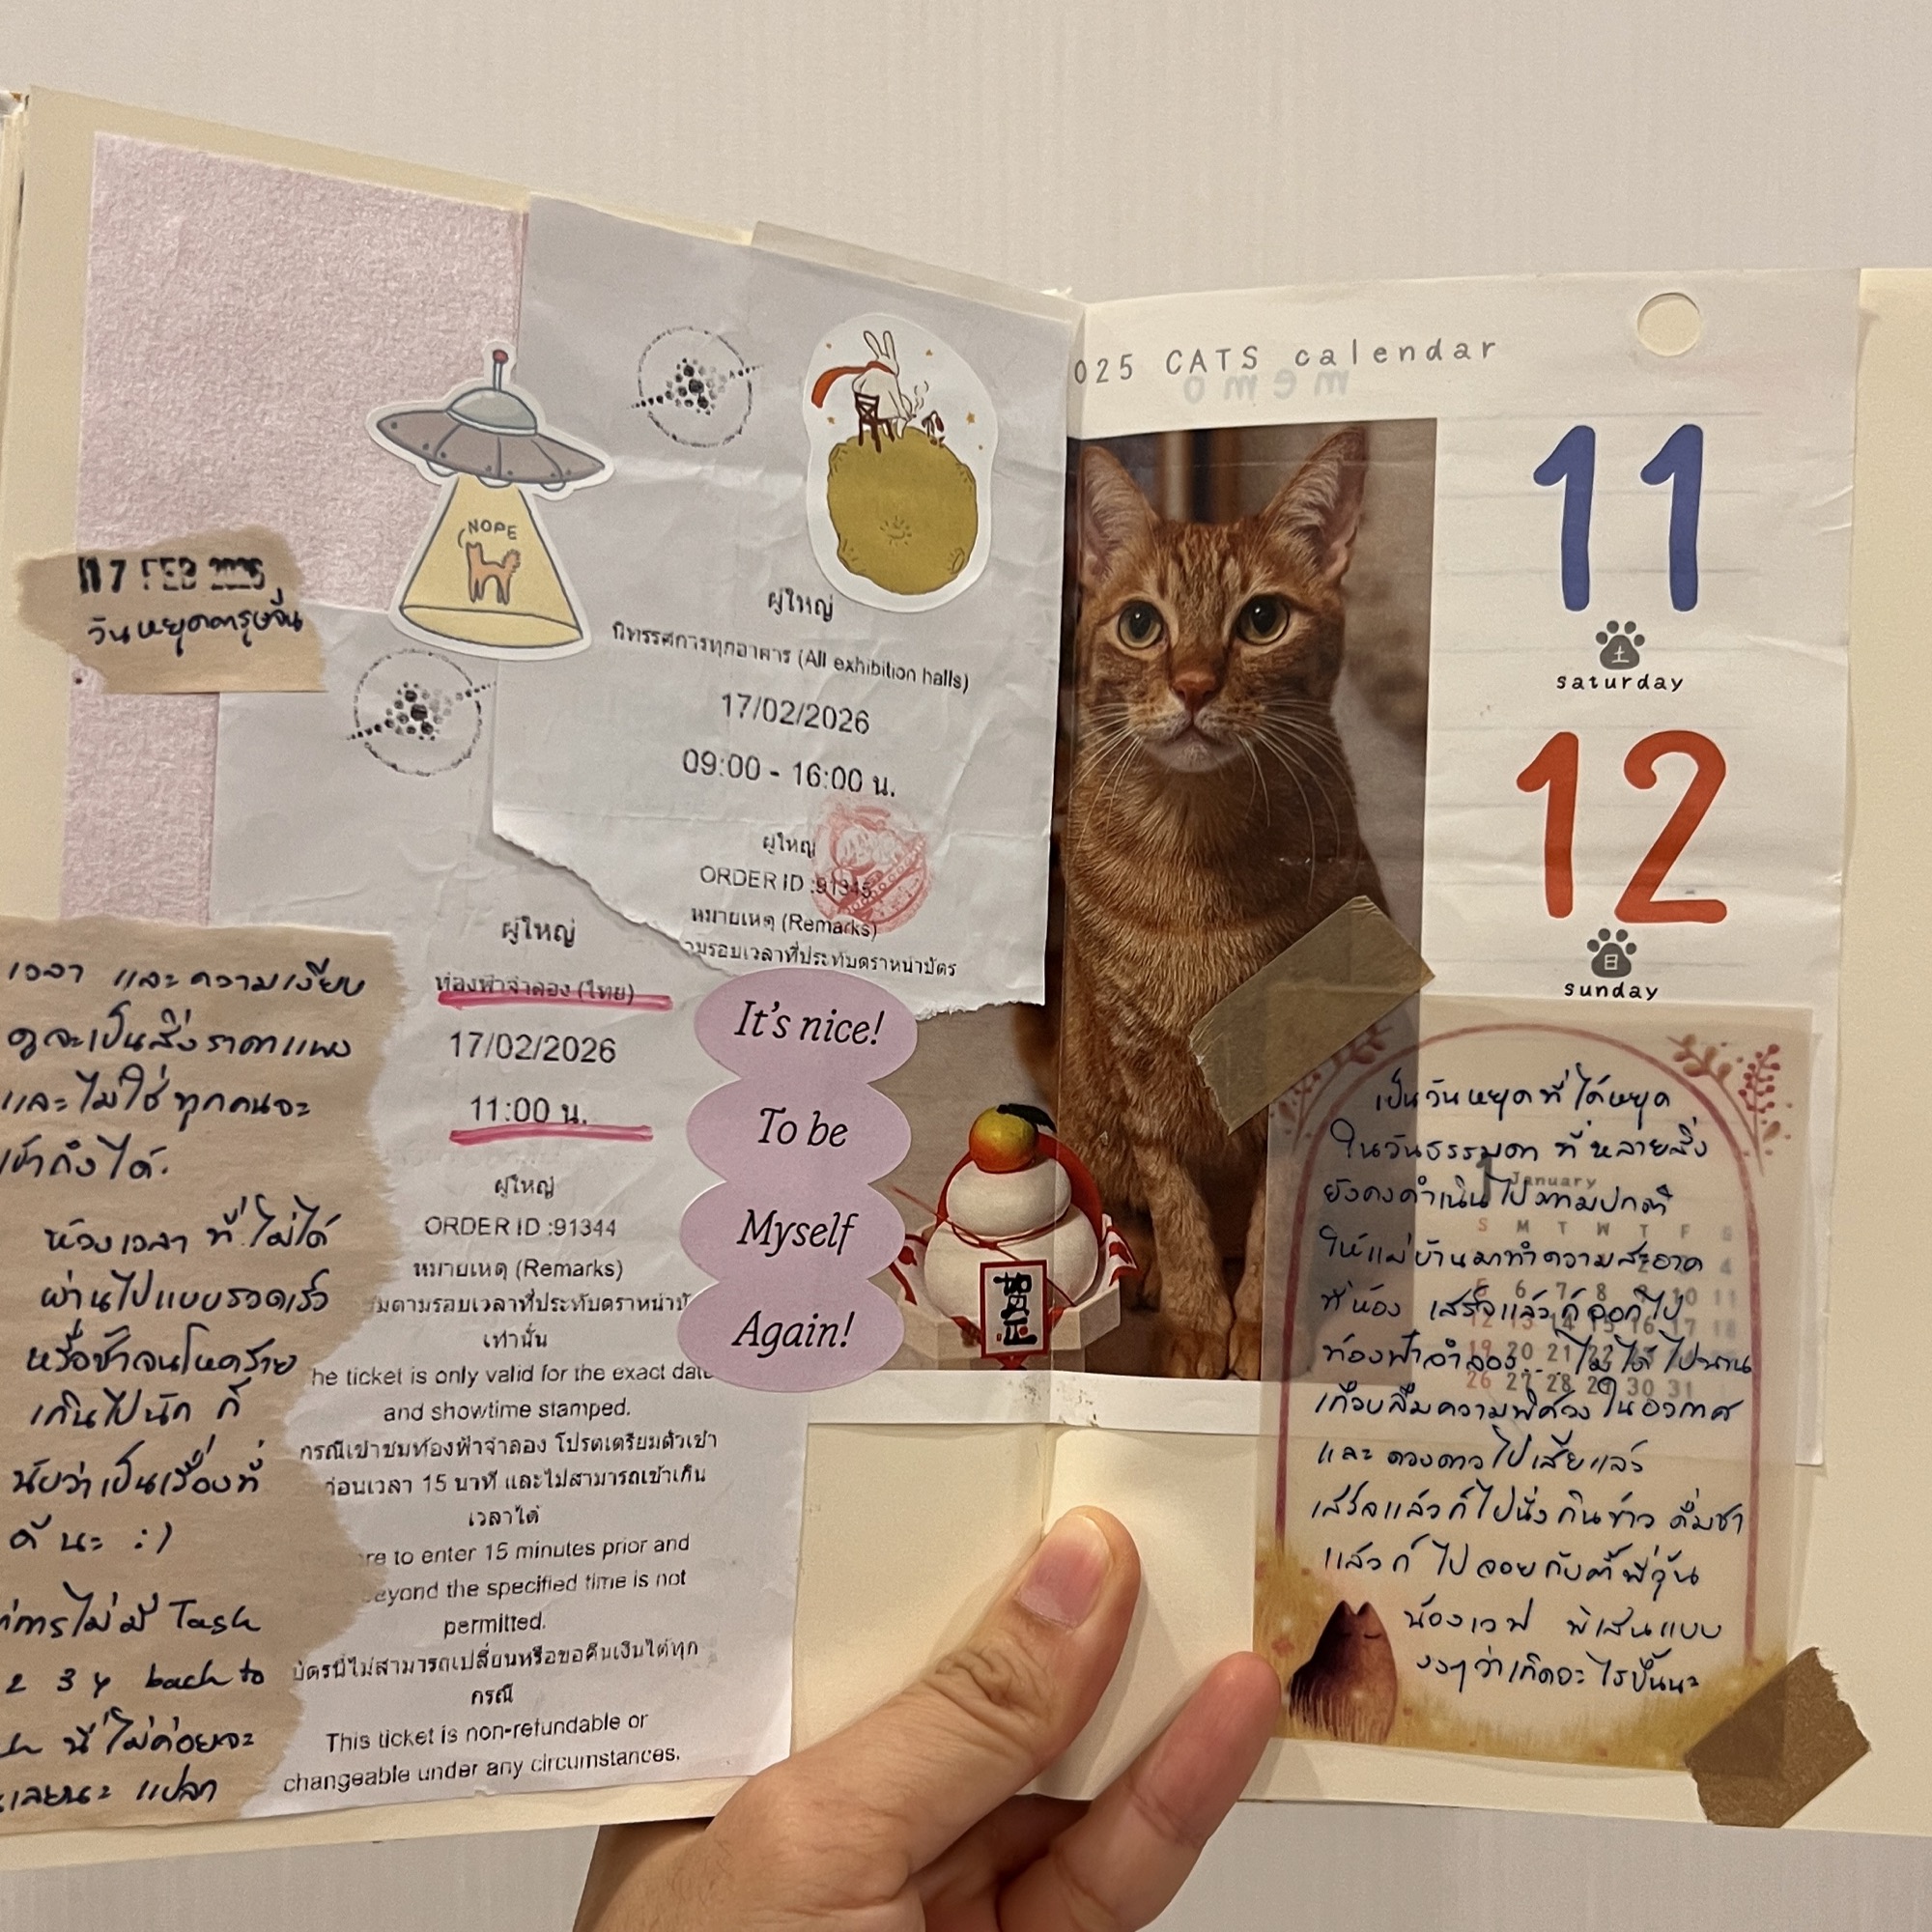 17 FEB 2026
วันหยุดตรุษจีน
NOPE
ผู้ใหญ่
นิทรรศการทุกอาคาร (All exhibition halls)
17/02/2026
09:00 - 16:00 น.
ผู้ใหญ่
ORDER ID :91345
หมายเหตุ (Remarks)
ามรอบเวลาที่ประทับตราหน้าบัตร
ผู้ใหญ่
ท้องฟ้าจำลอง (ไทย)
17/02/2026
11:00 น.
ผู้ใหญ่
ORDER ID :91344
หมายเหตุ (Remarks)
มตามรอบเวลาที่ประทับตราหน้าบั
เท่านั้น
he ticket is only valid for the exact date
and showtime stamped.
กรณีเข้าชมท้องฟ้าจำลอง โปรดเตรียมตัวเข้า
ก่อนเวลา 15 นาที และไม่สามารถเข้าเกิน
เวลาได้
re to enter 15 minutes prior and
eyond the specified time is not
permitted.
บัตรนี้ไม่สามารถเปลี่ยนหรือขอคืนเงินได้ทุก
กรณี
This ticket is non-refundable or
changeable under any circumstances.
It's nice!
To be
Myself
Again!
เวลา และความเงียบ
ดูจะเป็นสิ่งราคาแพง
และไม่ใช่ทุกคนจะ
เข้าถึงได้.
ห้วงเวลา ที่ไม่ได้
ผ่านไปแบบรวดเร็ว
หรือช้าจนโหดร้าย
เกินไปนัก ก็
นับว่าเป็นเรื่องที่
ดี นะ :)
การไม่มี Task
2 3 4 back to
นี่ไม่ค่อยจะ
เลยนะ แปลก
025 CATS calendar
memo
11
土
saturday
12
日
sunday
賀正
เป็นวันหยุดที่ได้หยุด
ในวันธรรมดา ที่หลายสิ่ง
ยังคงดำเนินไปตามปกติ
ให้แม่บ้านมาทำความสะอาด
ที่ห้อง เสร็จแล้วก็ออกไป
ท้องฟ้าจำลอง... ไม่ได้ไปนาน
เกือบลืมความพิศวงในอวกาศ
และ ดวงดาวไปเสียแล้ว
เสร็จแล้วก็ไปนั่งกินข้าว ดื่มชา
แล้วก็ ไปจอยกับตี้พี่วุ้น
น้องเวฟ พิเสนแบบ
งงๆว่าเกิดอะไรขึ้นนะ
1 January
S M T W T F S
4
5 6 7 8 10 11
12 13 14 15 16 17 18
19 20 21 22
26 27 28 29 30 31